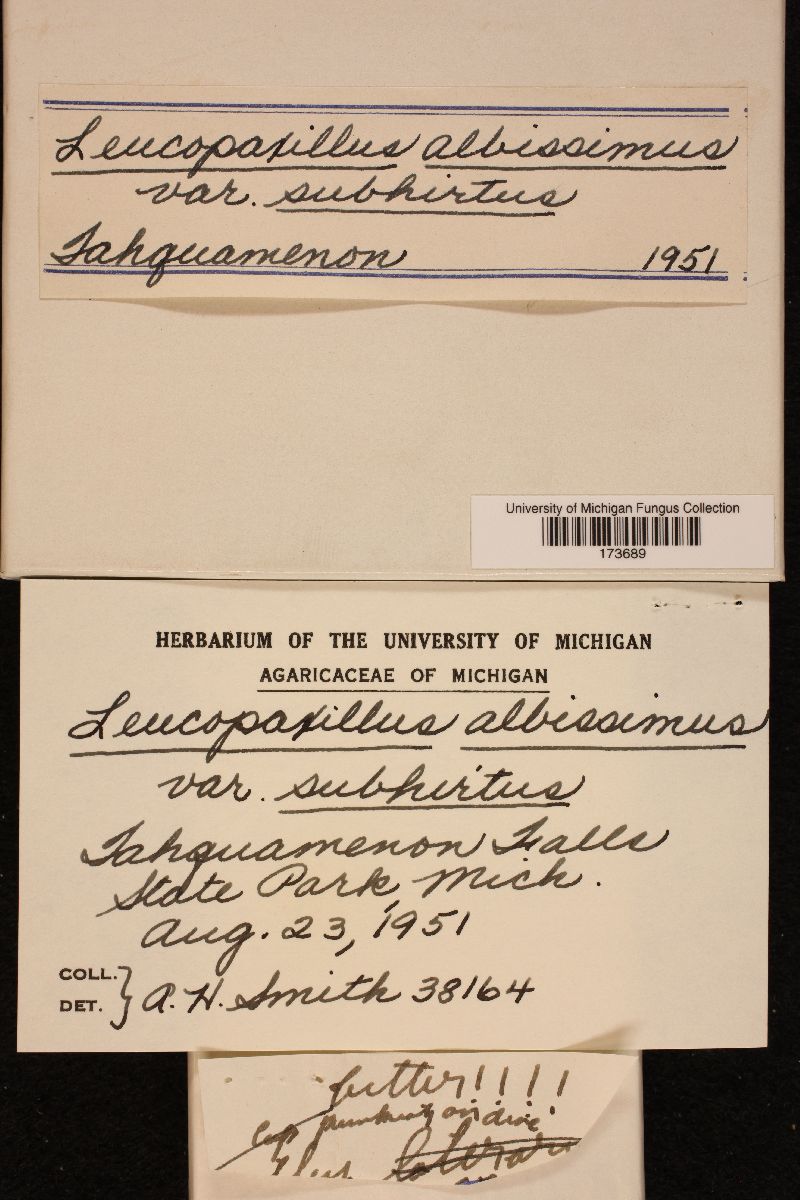 Leucopaxillus albissimus
var. subhirtus
Tahquamenon 1951
University of Michigan Fungus Collection
173689
HERBARIUM OF THE UNIVERSITY OF MICHIGAN
AGARICACEAE OF MICHIGAN
Leucopaxillus albissimus
var. subhirtus
Tahquamenon Falls
State Park, Mich.
Aug. 23, 1951
COLL.
DET. } A. H. Smith 38164
bitter!!!!
cap on disc